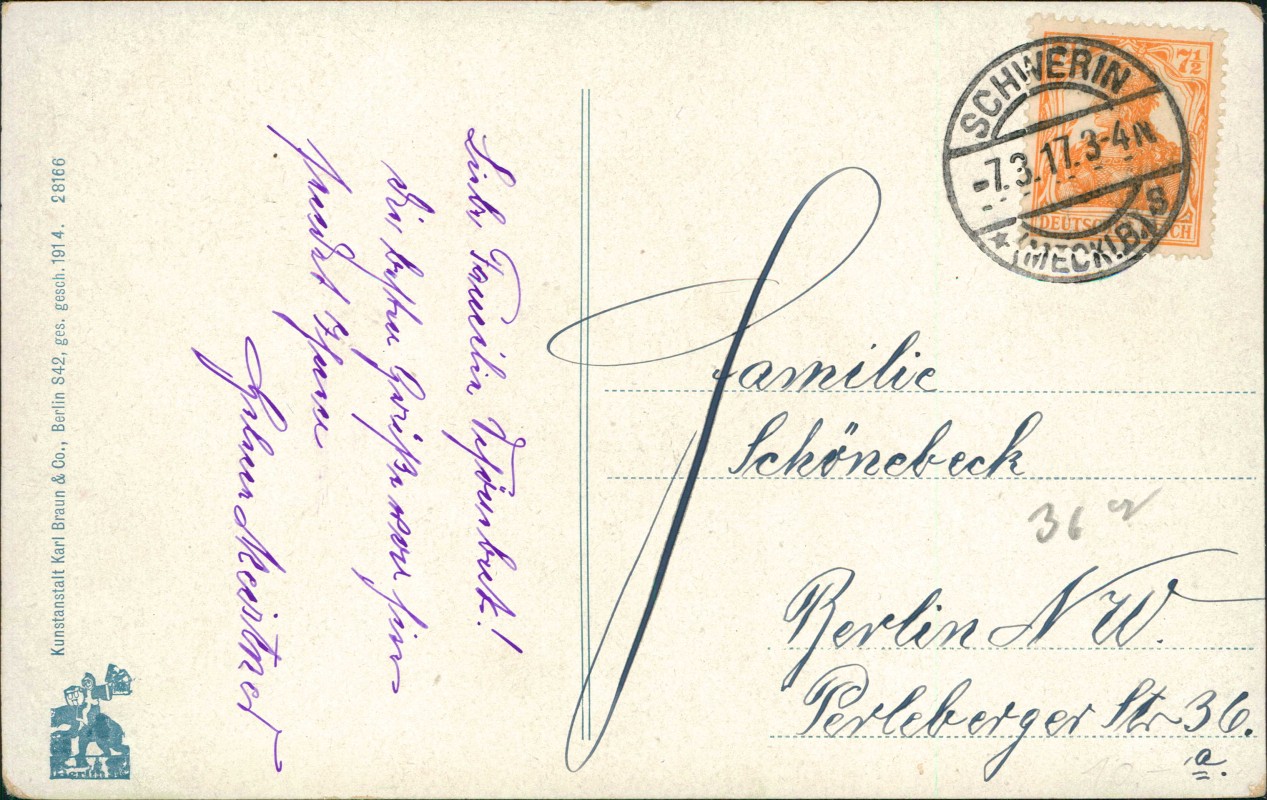 Kunstanstalt Karl Braun & Co., Berlin S42, ges. gesch. 1914. 28166
Berlin
Liebe Familie Schönebeck!
Die besten Grüße von hier
sendet Ihnen
Meistner
7½
DEUTSCHES REICH
SCHWERIN
-7.3.17. 3-4N
* (MECKLB.) S
Familie
Schönebeck
36
Berlin NW.
Perleberger Str 36.
a.